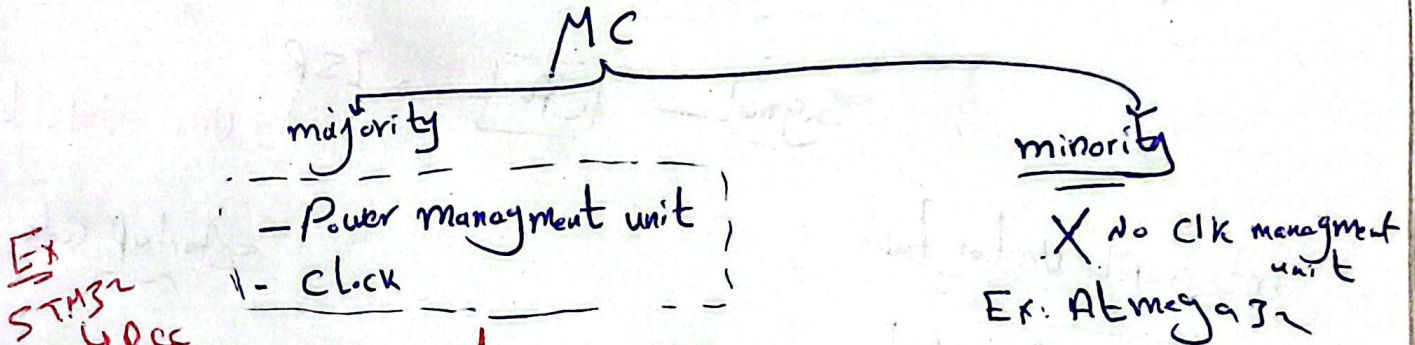 MC
majority
- Power managment unit
- Clock
Ex
STM32
↳ RCC
minority
X No Clk managment
unit
Ex: Atmega32